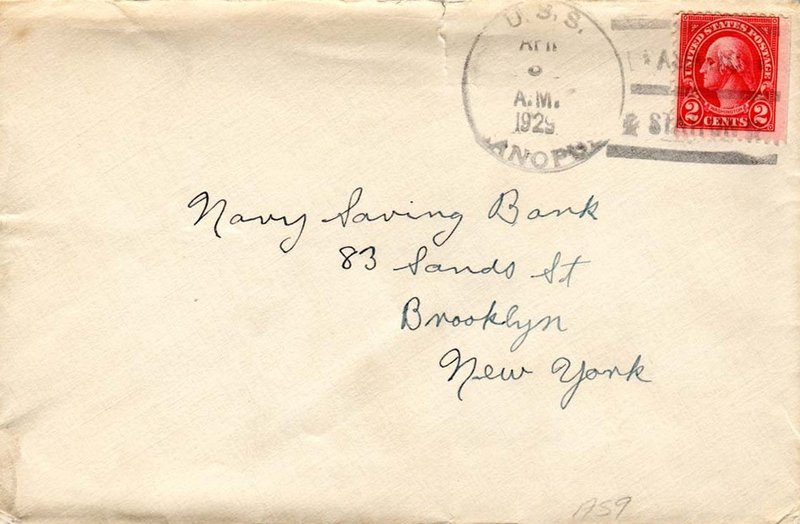 U. S. S.
APR
A.M.
1929
CANOPUS
UNITED STATES POSTAGE
WASHINGTON
2 CENTS 2
Navy Saving Bank
83 Sands St
Brooklyn
New York
A59